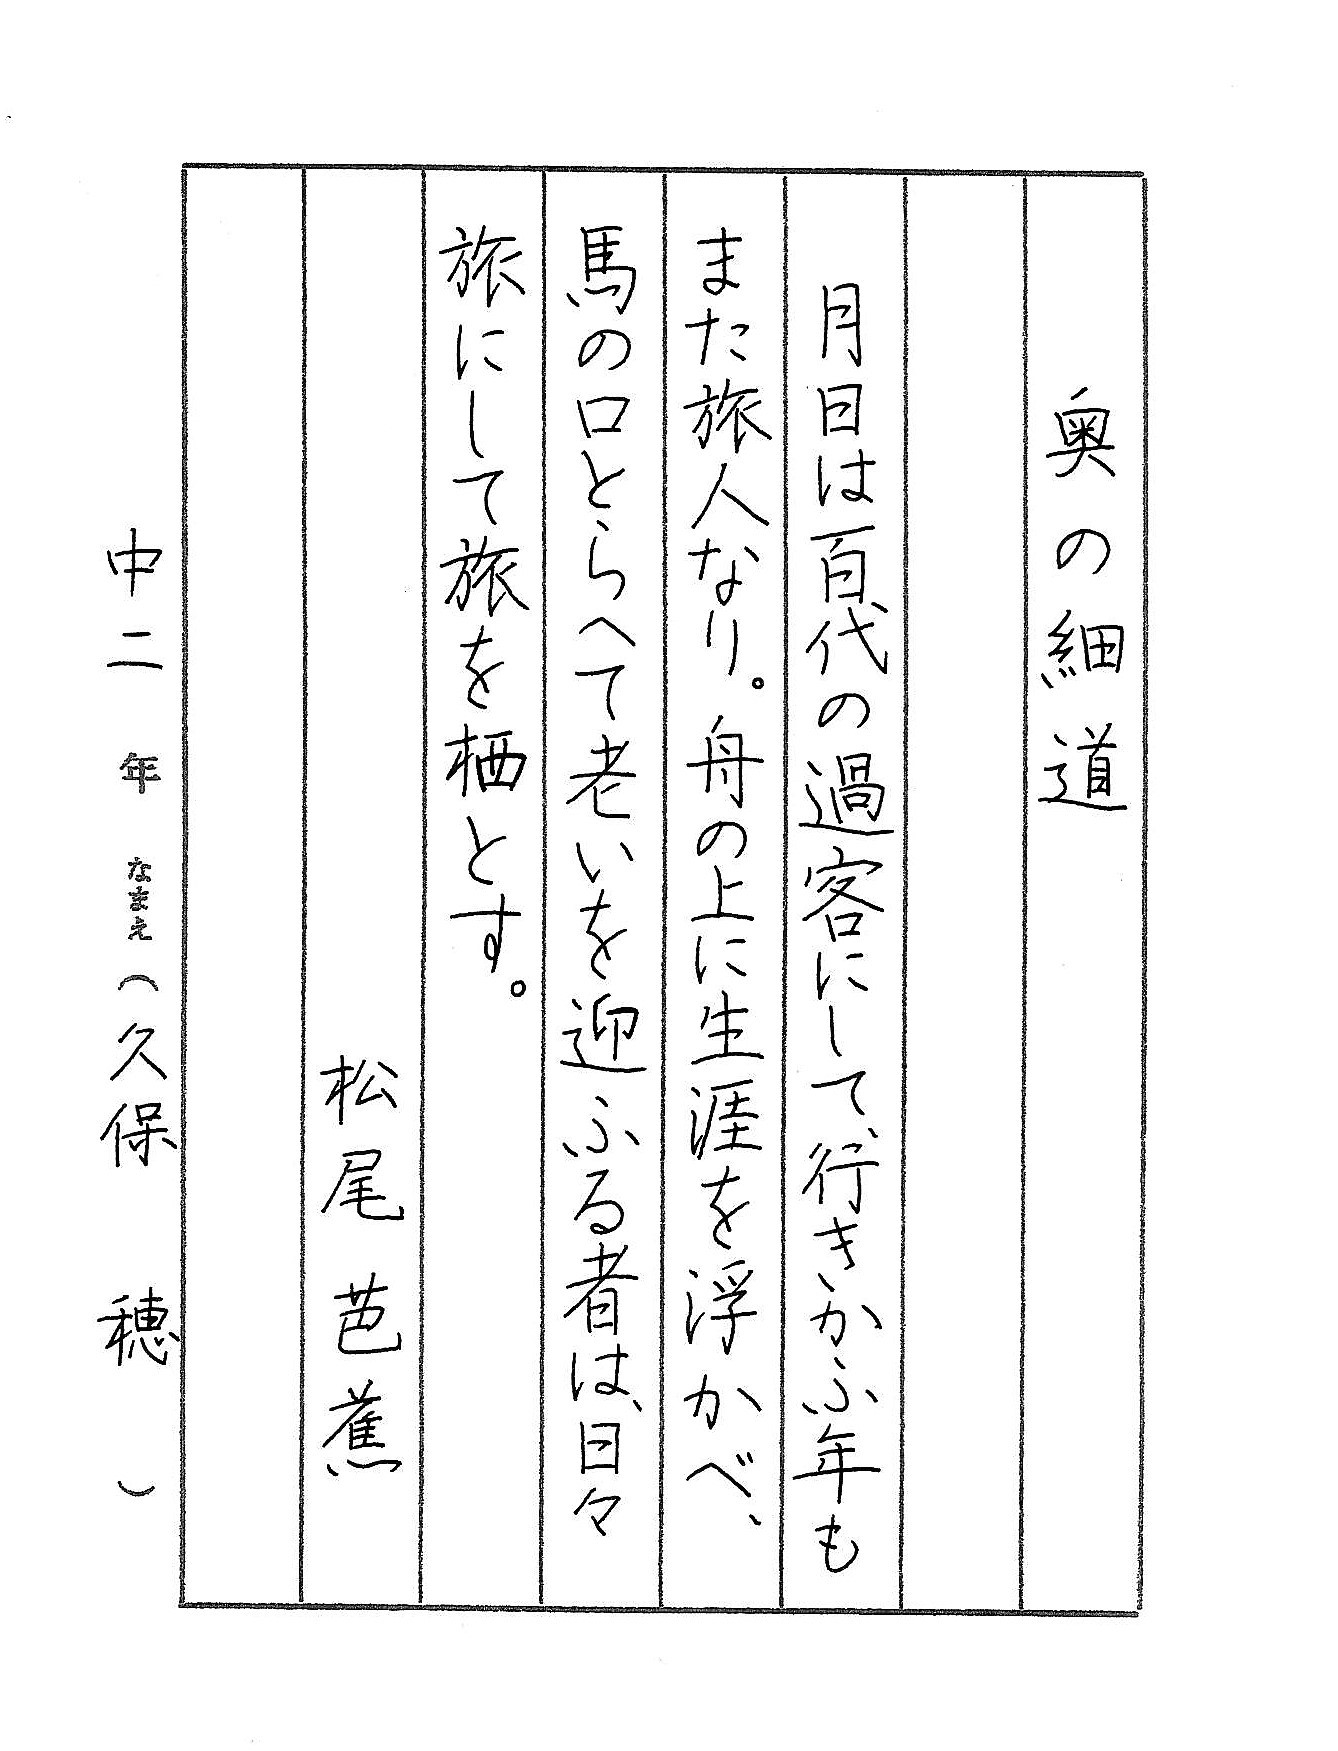 奥の細道
月日は百代の過客にして、行きかふ年も
また旅人なり。舟の上に生涯を浮かべ、
馬の口とらへて老いを迎ふる者は、日々
旅にして旅を栖とす。
松尾芭蕉
中二年 なまえ（久保 穂）